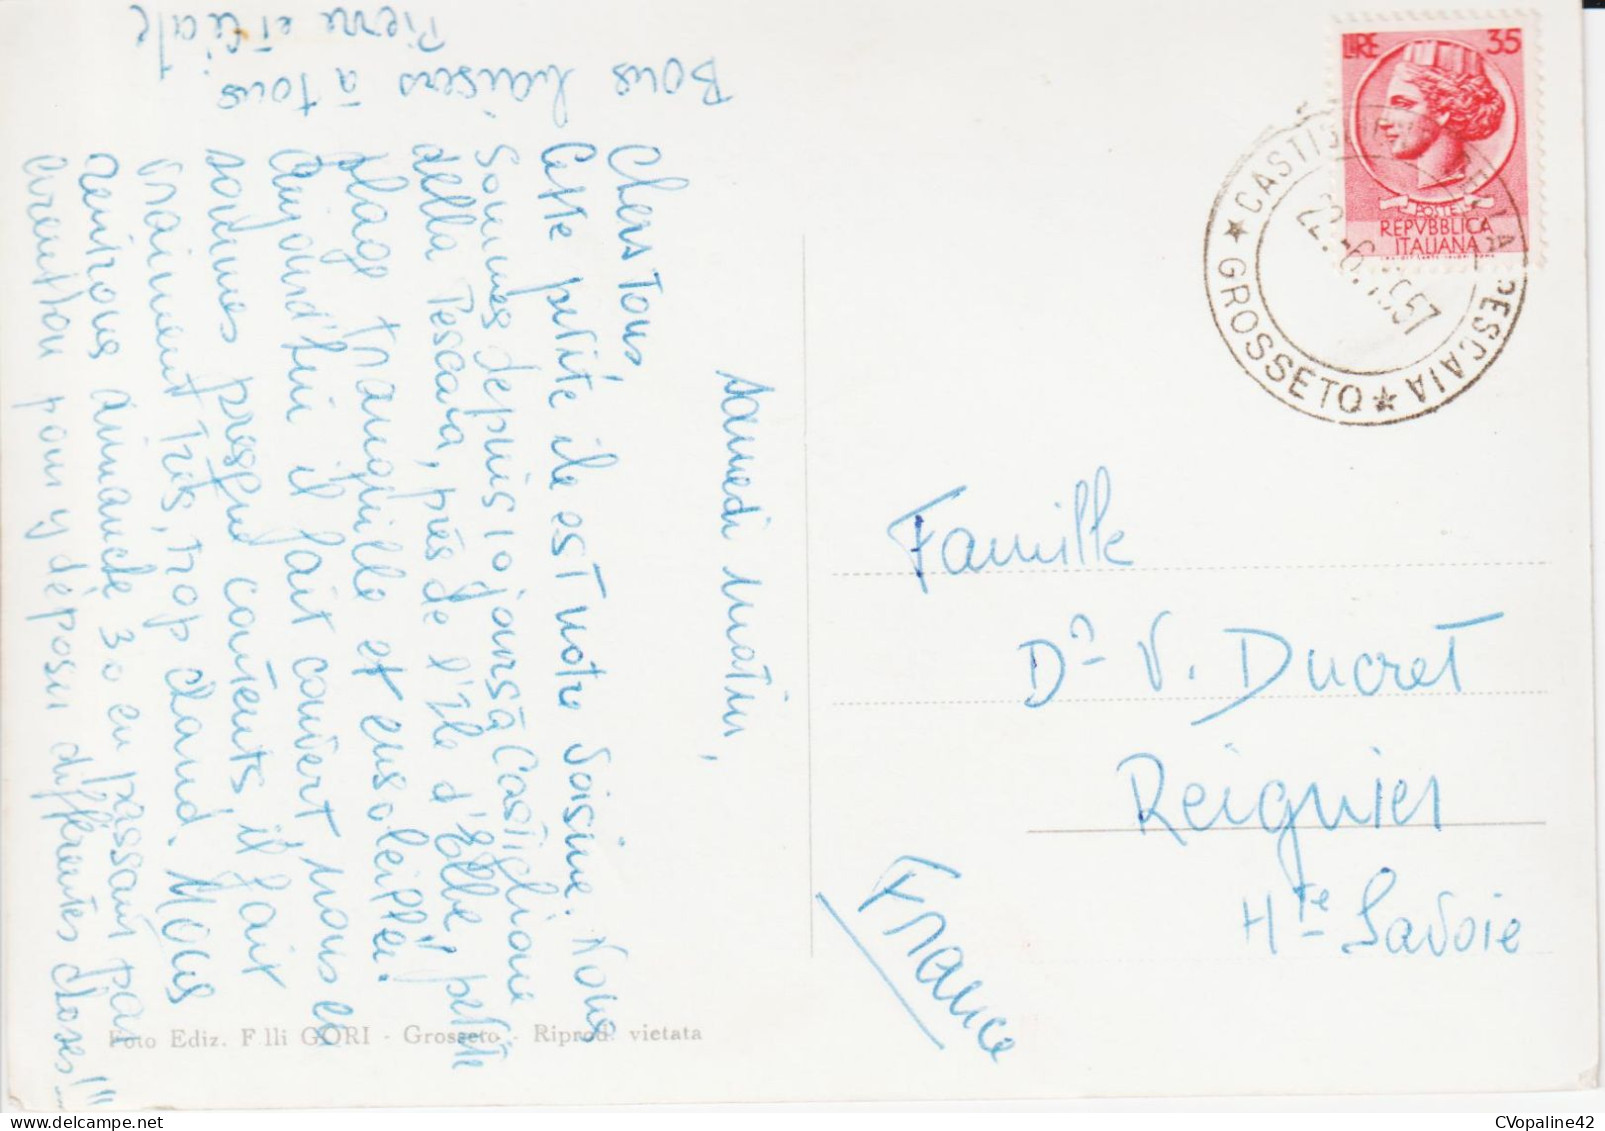 Samedi matin,
Chers Tous,
Cette petite île est notre voisine. Nous
sommes depuis 10 jours à Castiglione
della Pescaia, près de l'Île d'Elbe, petite
plage tranquille et ensoleillée!
Aujourd'hui il fait couvert, nous en
sommes presque contents, il fait
vraiment très, trop chaud. Nous
rentrons dimanche 30 en passant par
pour y déposer différentes choses!!!
Bons baisers à tous
Pierre et
LIRE 35
POSTE
REPVBBLICA
ITALIANA
CASTIGLIONE DELLA PESCAIA
★ GROSSETO ★
22.-6.1957
Famille
Dr V. Ducret
Reignier
Hte Savoie
France
Foto Ediz. F.lli GORI - Grosseto - Riprod. vietata
CVopaline42